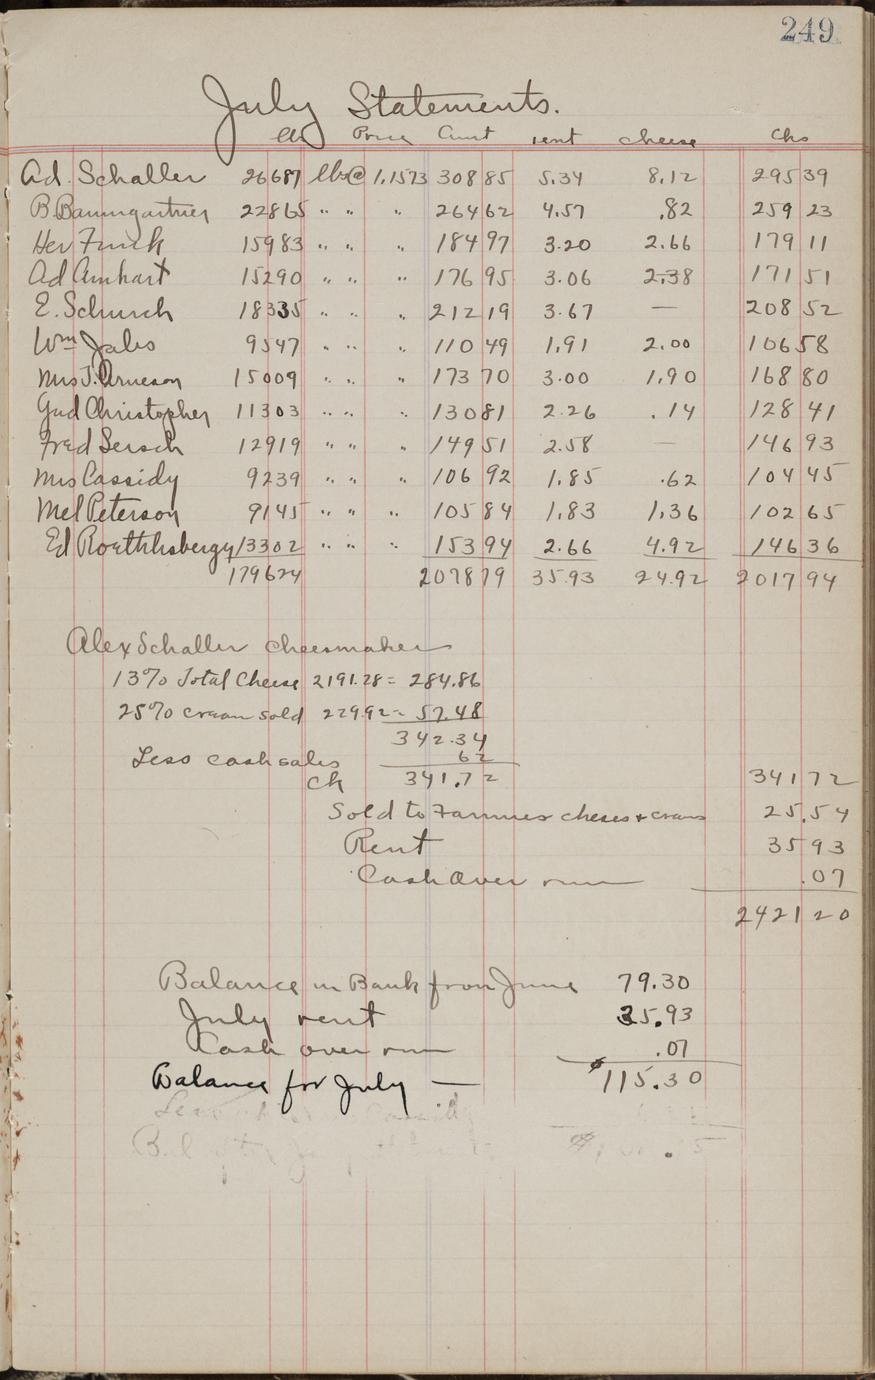 249
July Statements.
lbs Price Amt rent cheese Chs
Ad. Schaller 26687 lbs @ 1.1573 308 85 5.34 8.12 295 39
B. Baumgartner 22865 " " " 264 62 4.57 .82 259 23
Her Funk 15983 " " " 184 97 3.20 2.66 179 11
Ad Amhart 15290 " " " 176 95 3.06 2.38 171 51
E. Schurch 18335 " " " 212 19 3.67 — 208 52
Wm Jales 9547 " " " 110 49 1.91 2.00 106 58
Mrs J. Arneson 15009 " " " 173 70 3.00 1.90 168 80
Gud Christopher 11303 " " " 130 81 2.26 .14 128 41
Fred Sersch 12919 " " " 149 51 2.58 — 146 93
Mrs Cassidy 9239 " " " 106 92 1.85 .62 104 45
Mel Peterson 9145 " " " 105 84 1.83 1.36 102 65
Ed Roethlisbergy 13302 " " " 153 94 2.66 4.92 146 36
179624 2078 79 35.93 24.92 2017 94
Alex Schaller cheesmaker
13% Total Cheese 2191.28 = 284.86
25% cream sold 229.92 = 57.48
342.34
Less cash sales 62
ck 341.72 341 72
Sold to Farmers cheses + cream 25.54
Rent 35 93
Cash Over run .07
2421 20
Balance in Bank from June 79.30
July rent 35.93
Cash over run .07
Balance for July — $115.30